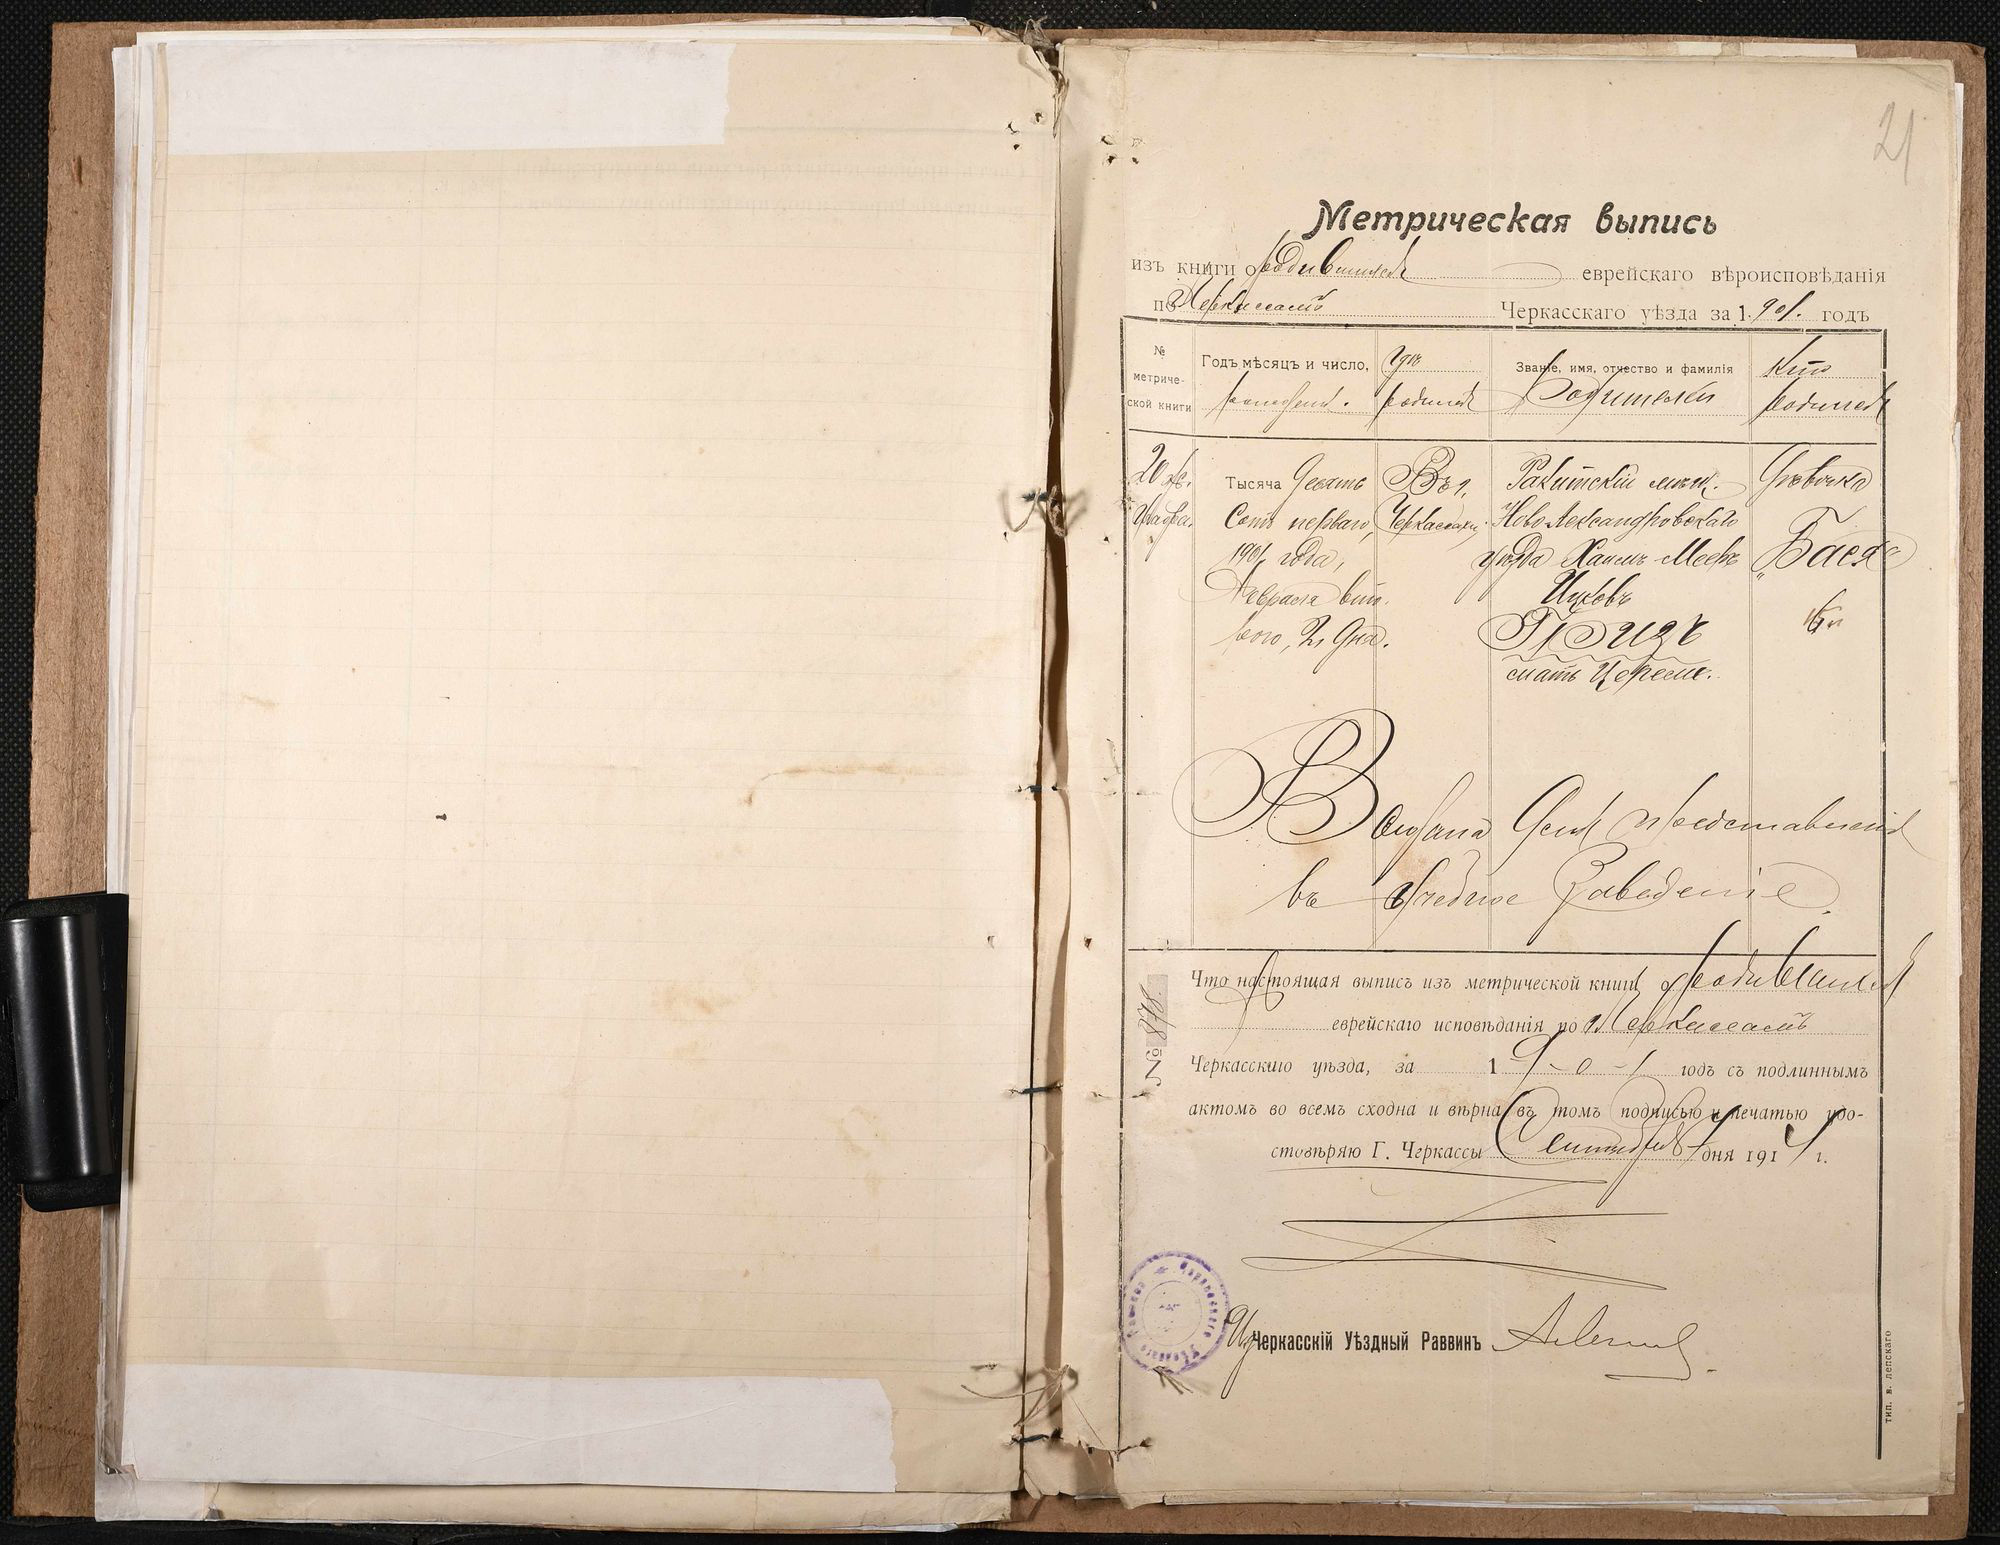 21
Метрическая выпись
изъ книги о родившихся еврейскаго вѣроисповѣданія
по г. Черкассамъ Черкасскаго уѣзда за 1901. годъ
№ метриче-ской книги
Годъ, мѣсяцъ и число, рожденія.
Гдѣ родился
Званіе, имя, отчество и фамилія Родителей
Кто родился
20 же.
Графа.
Тысяча девять
сотъ перваго,
1901 года,
Февраля вто-
рого, 2, дня.
Въ г.
Черкассахъ.
Ракитскій мѣщ.
Ново Александровскаго
уѣзда Хаимъ-Мееръ
Ицковъ
мать
Дѣвочка
"Бася"
Выдана для представленія
въ учебное заведеніе.
№ 878.
Что настоящая выпись изъ метрической книги о родившихся
еврейскаго исповѣданія по г. Черкассамъ
Черкасскаго уѣзда, за 1901 годъ съ подлиннымъ
актомъ во всемъ сходна и вѣрна въ томъ подписью и печатью удо-
стовѣряю Г. Черкассы Сентября дня 1914 г.
Черкасскій Уѣздный Раввинъ
тип. в. лепскаго